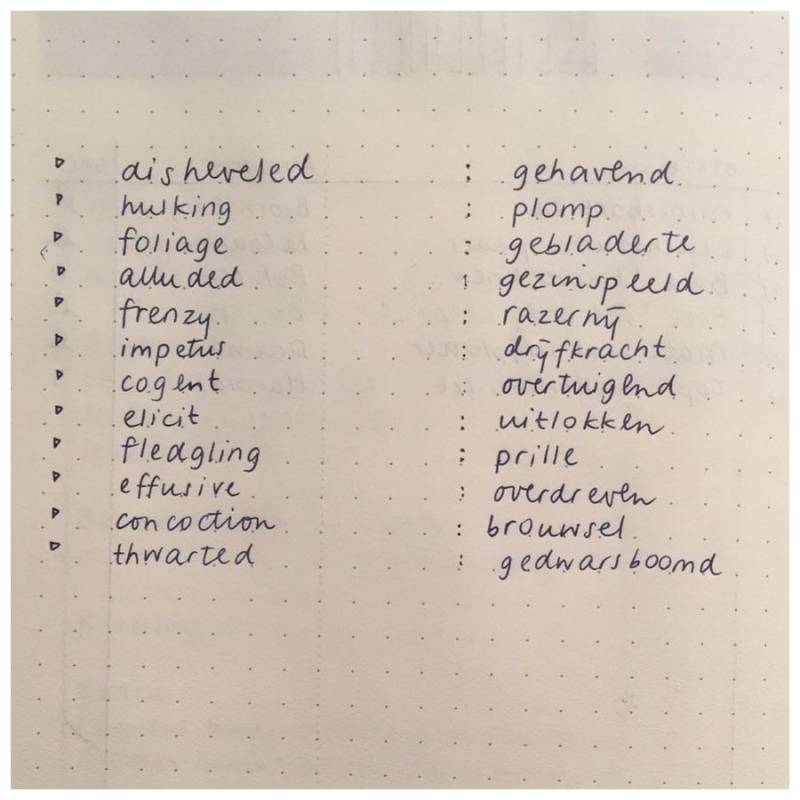 ▷ disheveled : gehavend
▷ hulking : plomp
▷ foliage : gebladerte
▷ alluded : gezinspeeld
▷ frenzy : razernij
▷ impetus : drijfkracht
▷ cogent : overtuigend
▷ elicit : uitlokken
▷ fledgling : prille
▷ effusive : overdreven
▷ concoction : brouwsel
▷ thwarted : gedwarsboomd